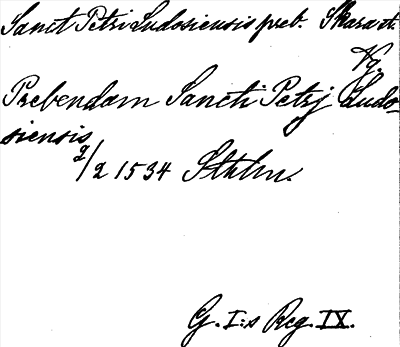 Sanct Petri Ludosiensis preb. Skara st.
Vg.
Prebendam Sancti Petrj Ludo-
siensis
9/2 1534 Sthlm.
G. I:s Reg. IX.